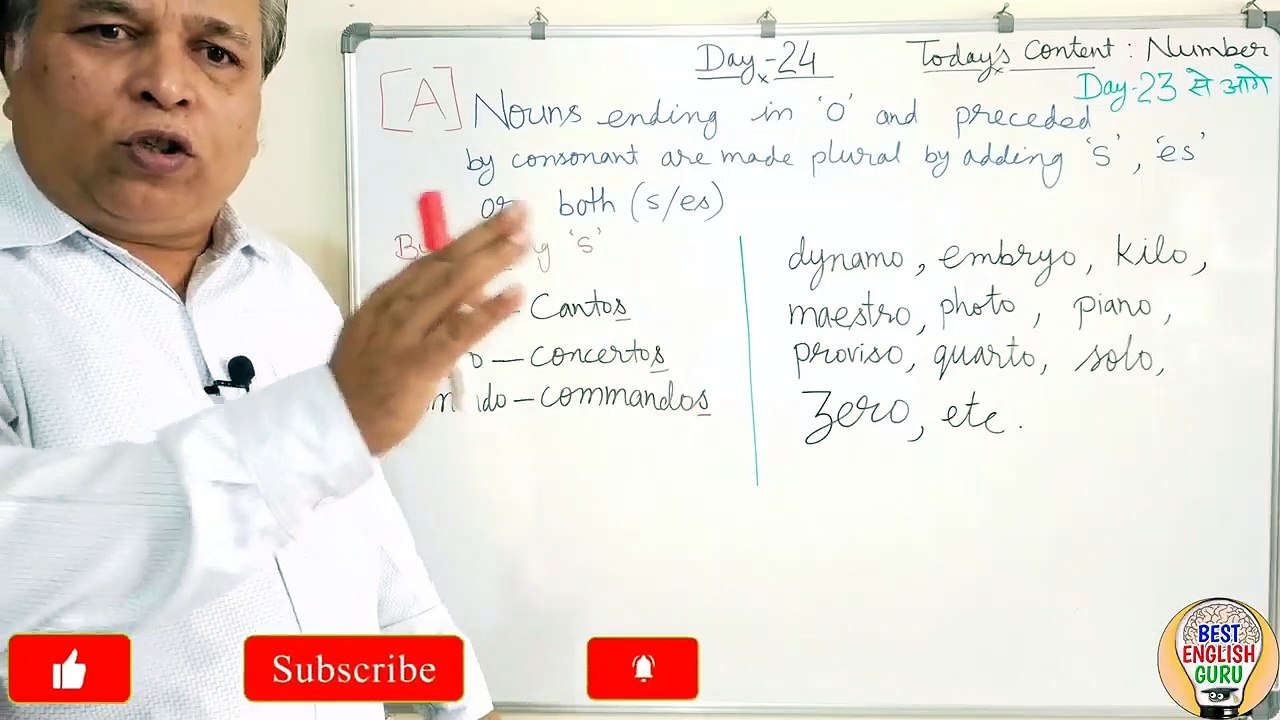 Day-24 Today's Content: Number
Day-23 से आगे
[A] Nouns ending in 'o' and preceded
by consonant are made plural by adding 's', 'es'
or both (s/es)
's'
– Cantos
– concertos
– commandos
dynamo, embryo, kilo,
maestro, photo, piano,
proviso, quarto, solo,
Zero, etc.
Subscribe
BEST
ENGLISH
GURU